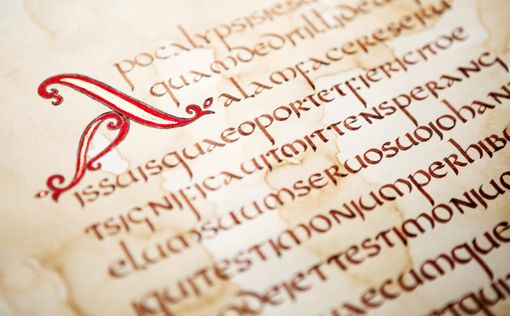 Apocalypsisies
quamdeditillideus
alamfacereseru
issuisquaeoportetfiericitoe
tsignificauitmittensperang
elumsuumseruosuoiohan
iquitestimoniumperhibu
odeiettestimonium
uaecumque